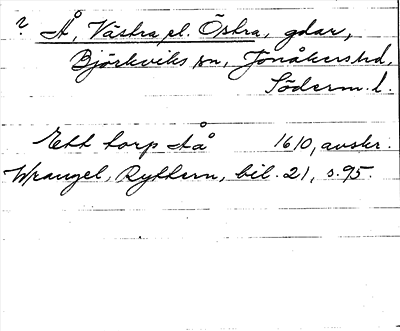 ? Å, Västra el. Östra, gdar,
Björkviks sn, Jönåkers hd,
Söderm. l.
Ett torp Å 1610, avskr.
Wrangel, Ryttern, bil. 21, s. 95.